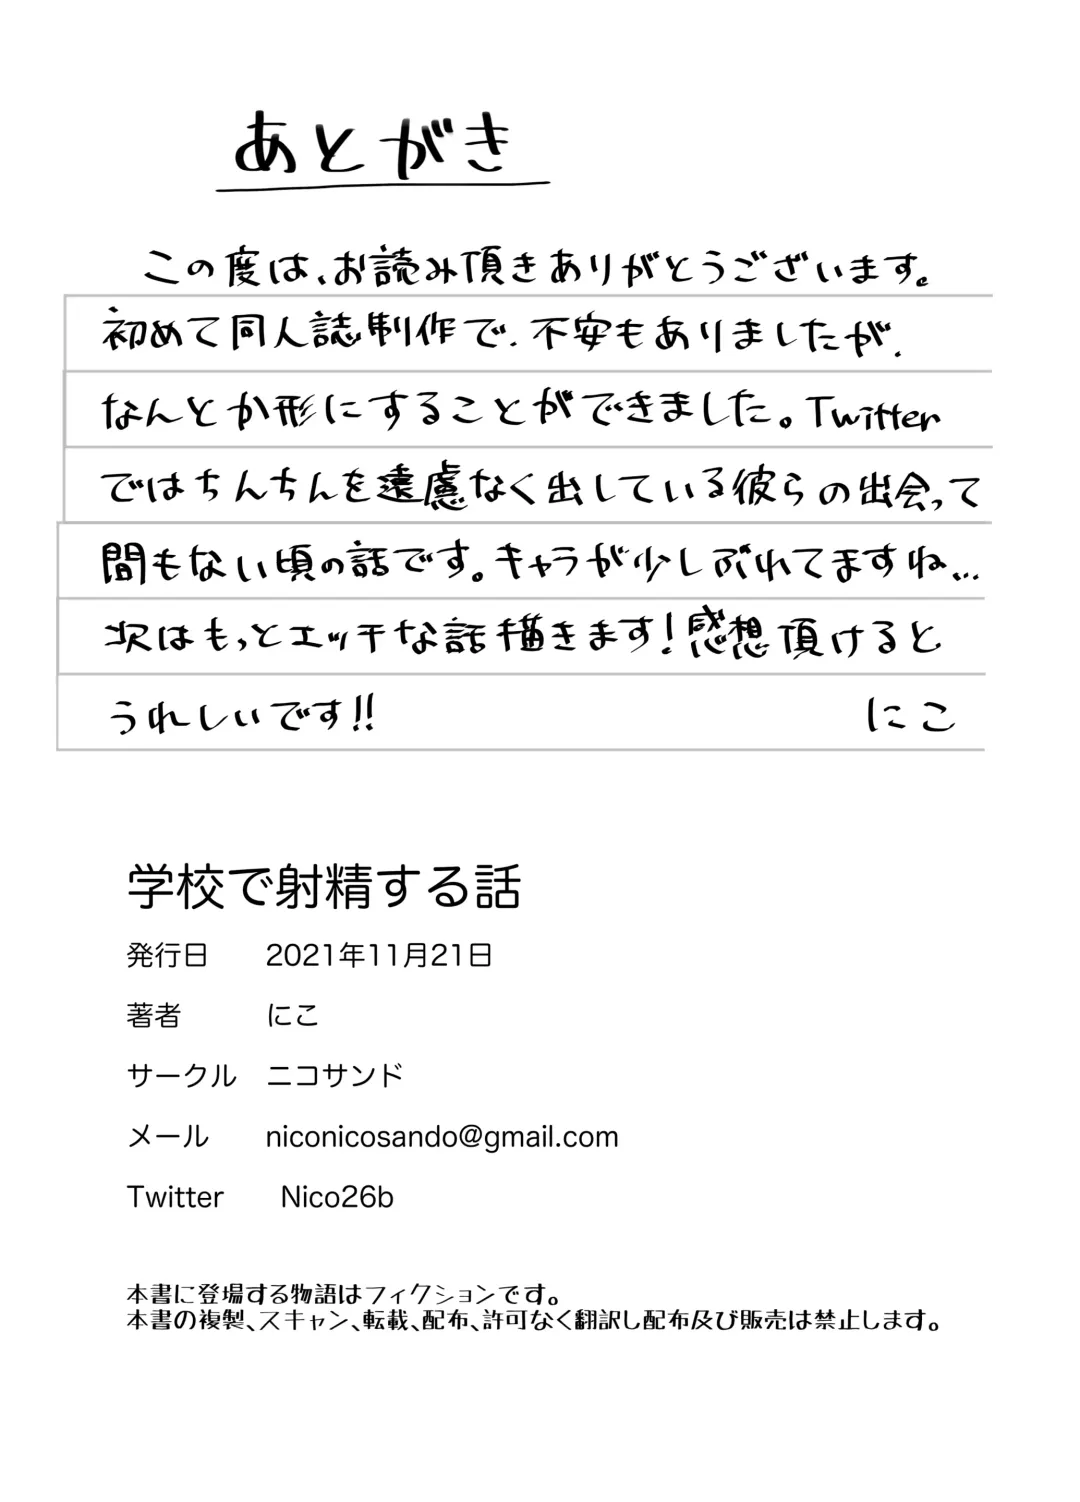 あとがき
この度は、お読み頂きありがとうございます。
初めて同人誌制作で、不安もありましたが、
なんとか形にすることができました。Twitter
ではちんちんを遠慮なく出している彼らの出会って
間もない頃の話です。キャラが少しぶれてますね...
次はもっとエッチな話描きます!感想頂けると
うれしいです!! にこ
学校で射精する話
発行日 2021年11月21日
著者 にこ
サークル ニコサンド
メール niconicosando@gmail.com
Twitter Nico26b
本書に登場する物語はフィクションです。
本書の複製、スキャン、転載、配布、許可なく翻訳し配布及び販売は禁止します。